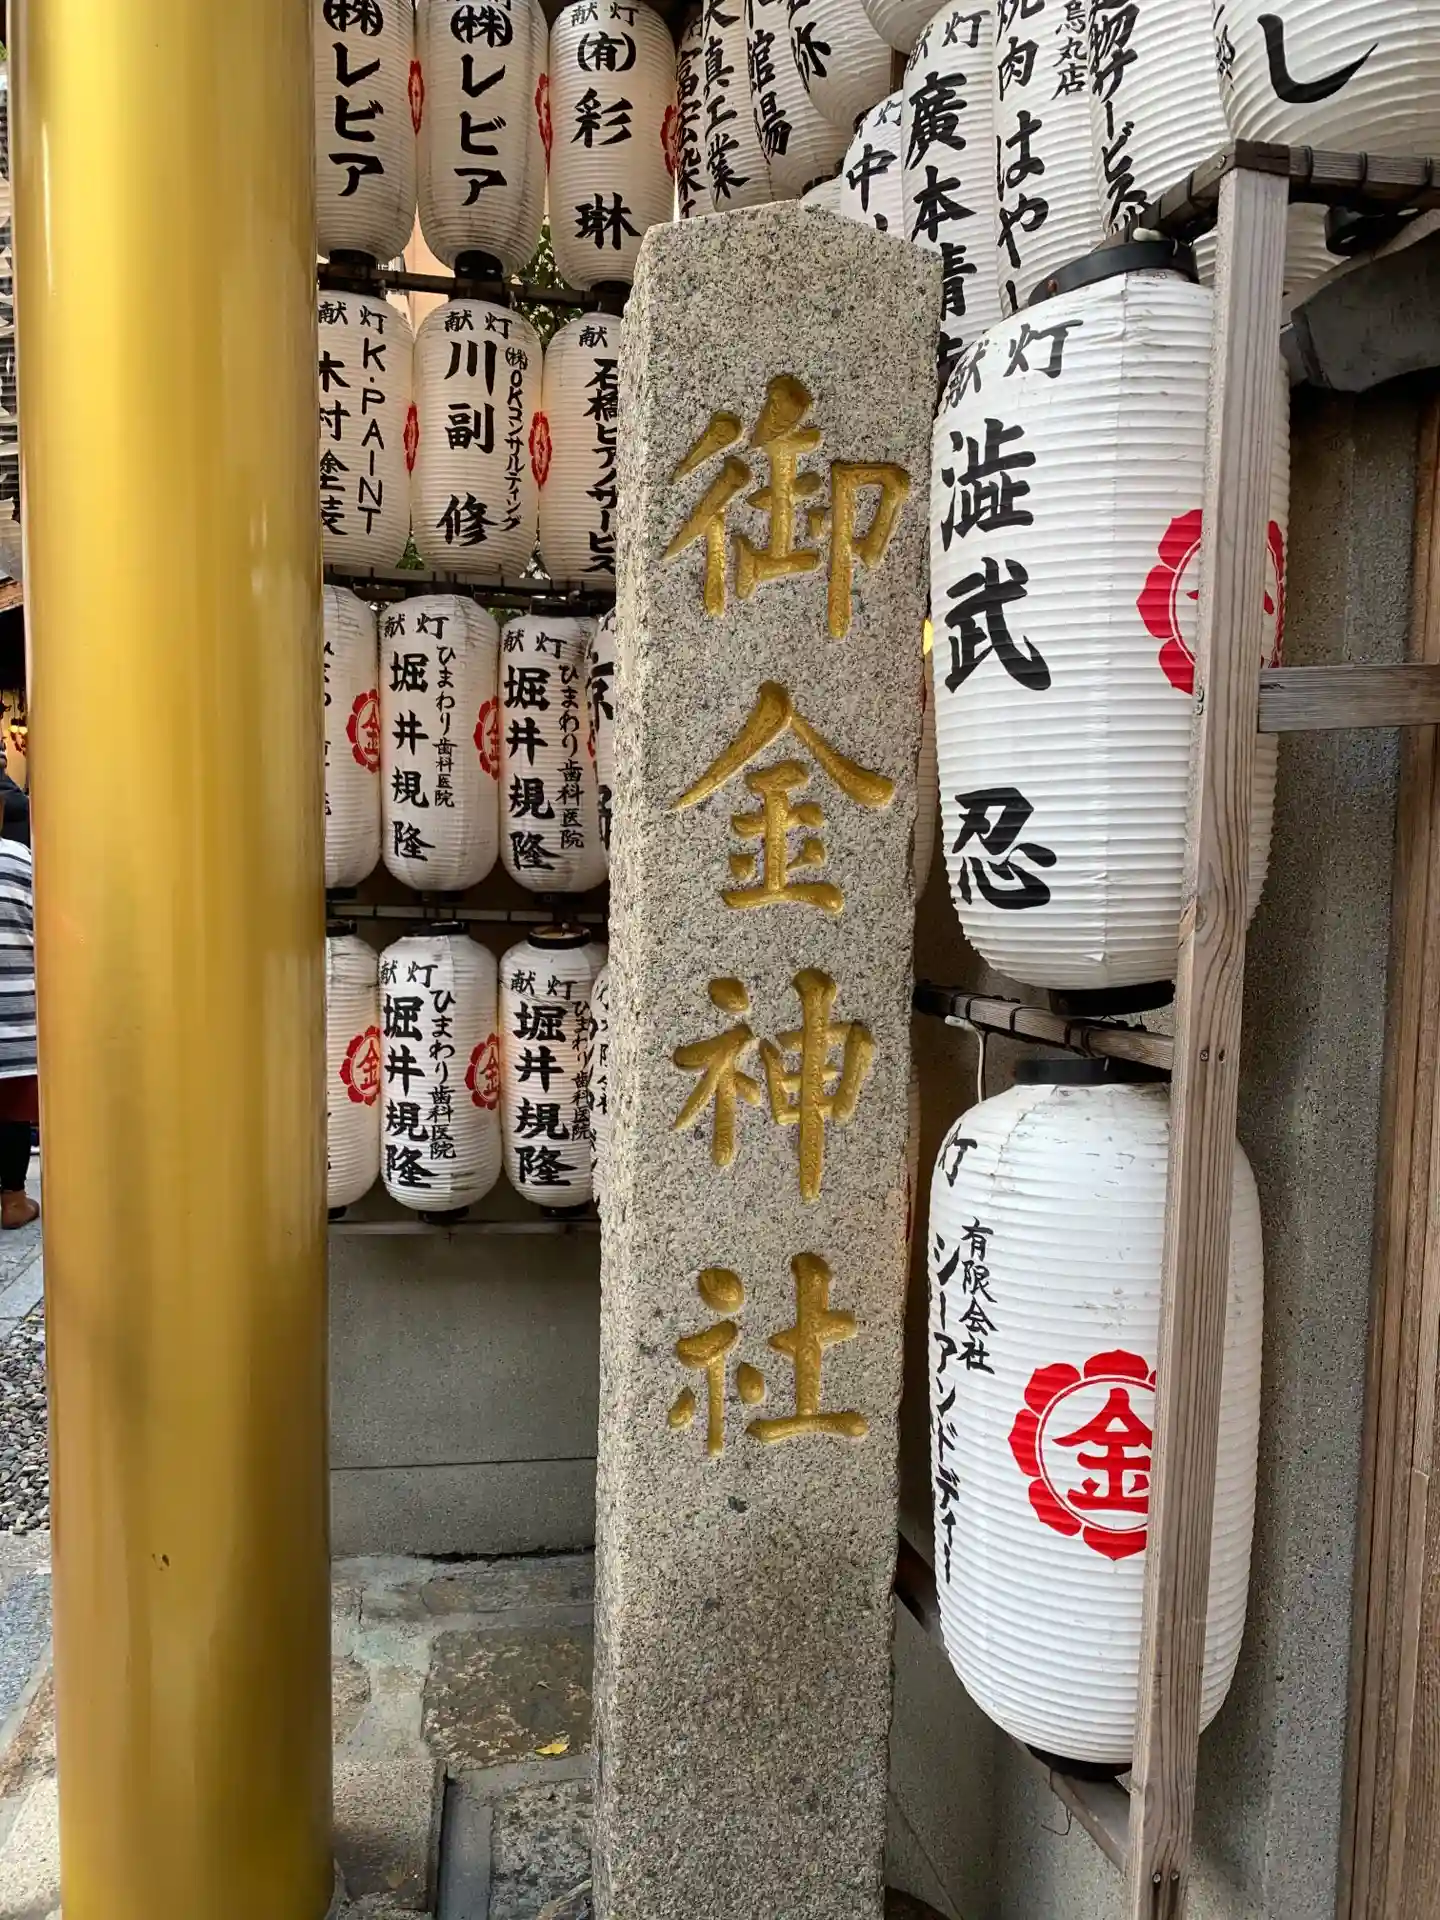 ㈱レビア
㈱レビア
献灯
㈲彩琳
廣本晴
焼肉はや
烏丸店
献灯
K.PAINT
木村塗装
献灯
㈱OKコンサルティング
川副修
献
石橋ピアノサービス
御金神社
献灯
澁武忍
献灯
ひまわり歯科医院
堀井規隆
金
献灯
ひまわり歯科医院
堀井規隆
金
献灯
ひまわり歯科医院
堀井規隆
金
献灯
ひまわり歯科医院
堀井規隆
金
灯
有限会社
シーアンドディー
金